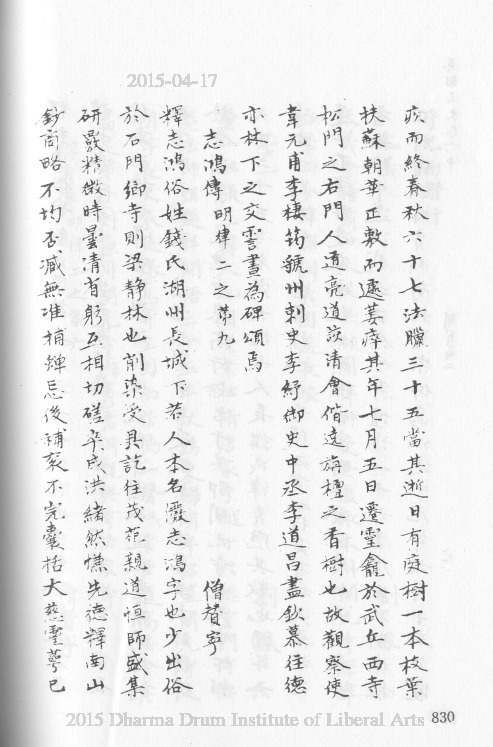 2015-04-17
疾而終春秋六十七法臘三十五當其逝日有庭樹一本枝葉
扶蘇朝華正敷而遽萎瘁其年七月五日遷靈龕於武丘西寺
松門之右門人道亮道該清會偕達旃檀之香樹也故觀察使
韋元甫李棲筠虢州刺史李紓御史中丞李道昌盡欽慕往德
亦林下之交靈晝為碑頌焉
志鴻傳 明律二之第九 僧贊寧
釋志鴻俗姓錢氏湖州長城下若人本名儼志鴻字也少出俗
於石門鄉寺則梁靜林也削染受具訖往茂苑親道恒師盛集
研覈精微時曇清省躬互相切磋卒成洪緒然慊先德釋南山
鈔商略不均否臧無准捕蟬忘後補袞不完囊括大慈靈萼已
2015 Dharma Drum Institute of Liberal Arts 830